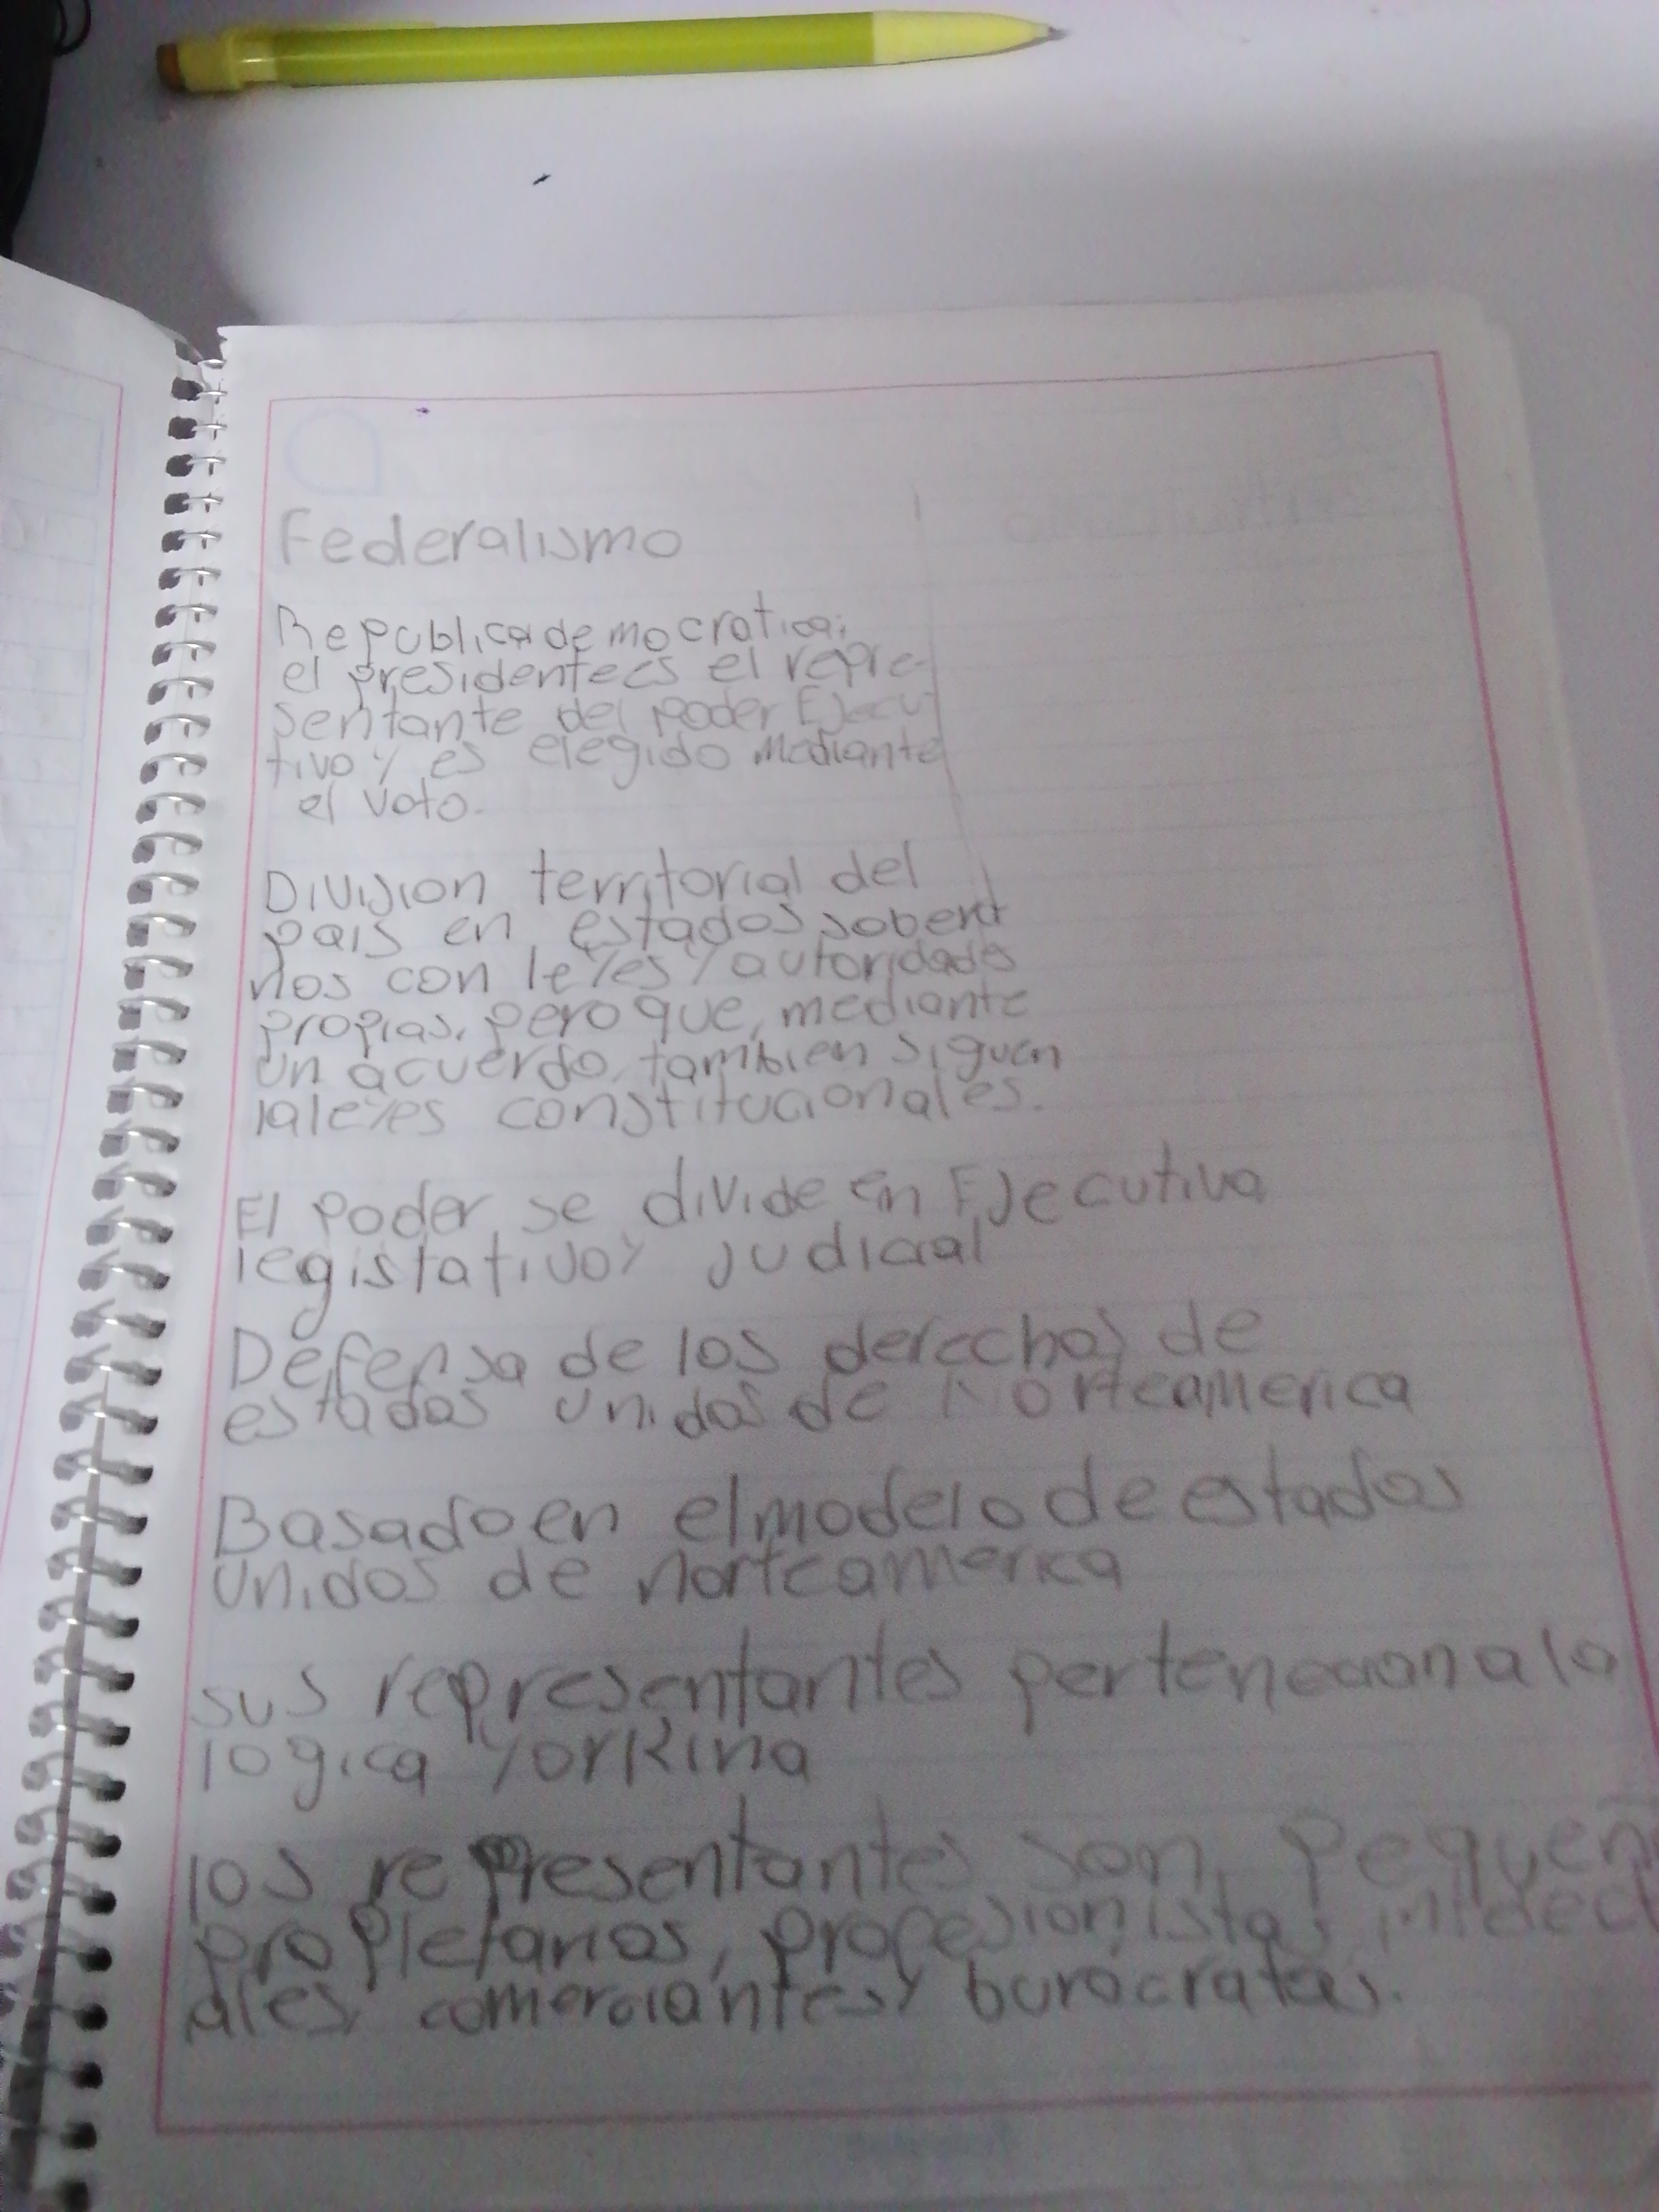 Federalismo
Republica democratica;
el presidente es el repre-
sentante del poder Ejecu
tivo y es elegido mediante
el voto.
Division territorial del
pais en estados sobera
nos con leyes y autoridades
propias, pero que, mediante
un acuerdo, tambien siguen
laleyes constitucionales.
El Poder se divide en Ejecutiva
legistativo y judicial
Defensa de los derechos de
estados unidos de Norteamerica
Basado en el modelo de estados
unidos de norteamerica
sus representantes pertenecian a la
logica yorkina
los representantes son pequeñ
propietarios, profesionistas, intelect
ales, comerciantes y burocratas.